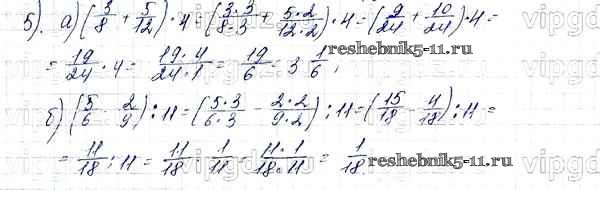 5). а) (3/8 + 5/12) · 4 = (3·3/8·3 + 5·2/12·2) · 4 = (9/24 + 10/24) · 4 =
= 19/24 · 4 = 19·4/24·1 = 19/6 = 3 1/6;
reshebnik5-11.ru
б) (5/6 - 2/9) : 11 = (5·3/6·3 - 2·2/9·2) : 11 = (15/18 - 4/18) : 11 =
= 11/18 : 11 = 11/18 · 1/11 = 11·1/18·11 = 1/18.
reshebnik5-11.ru